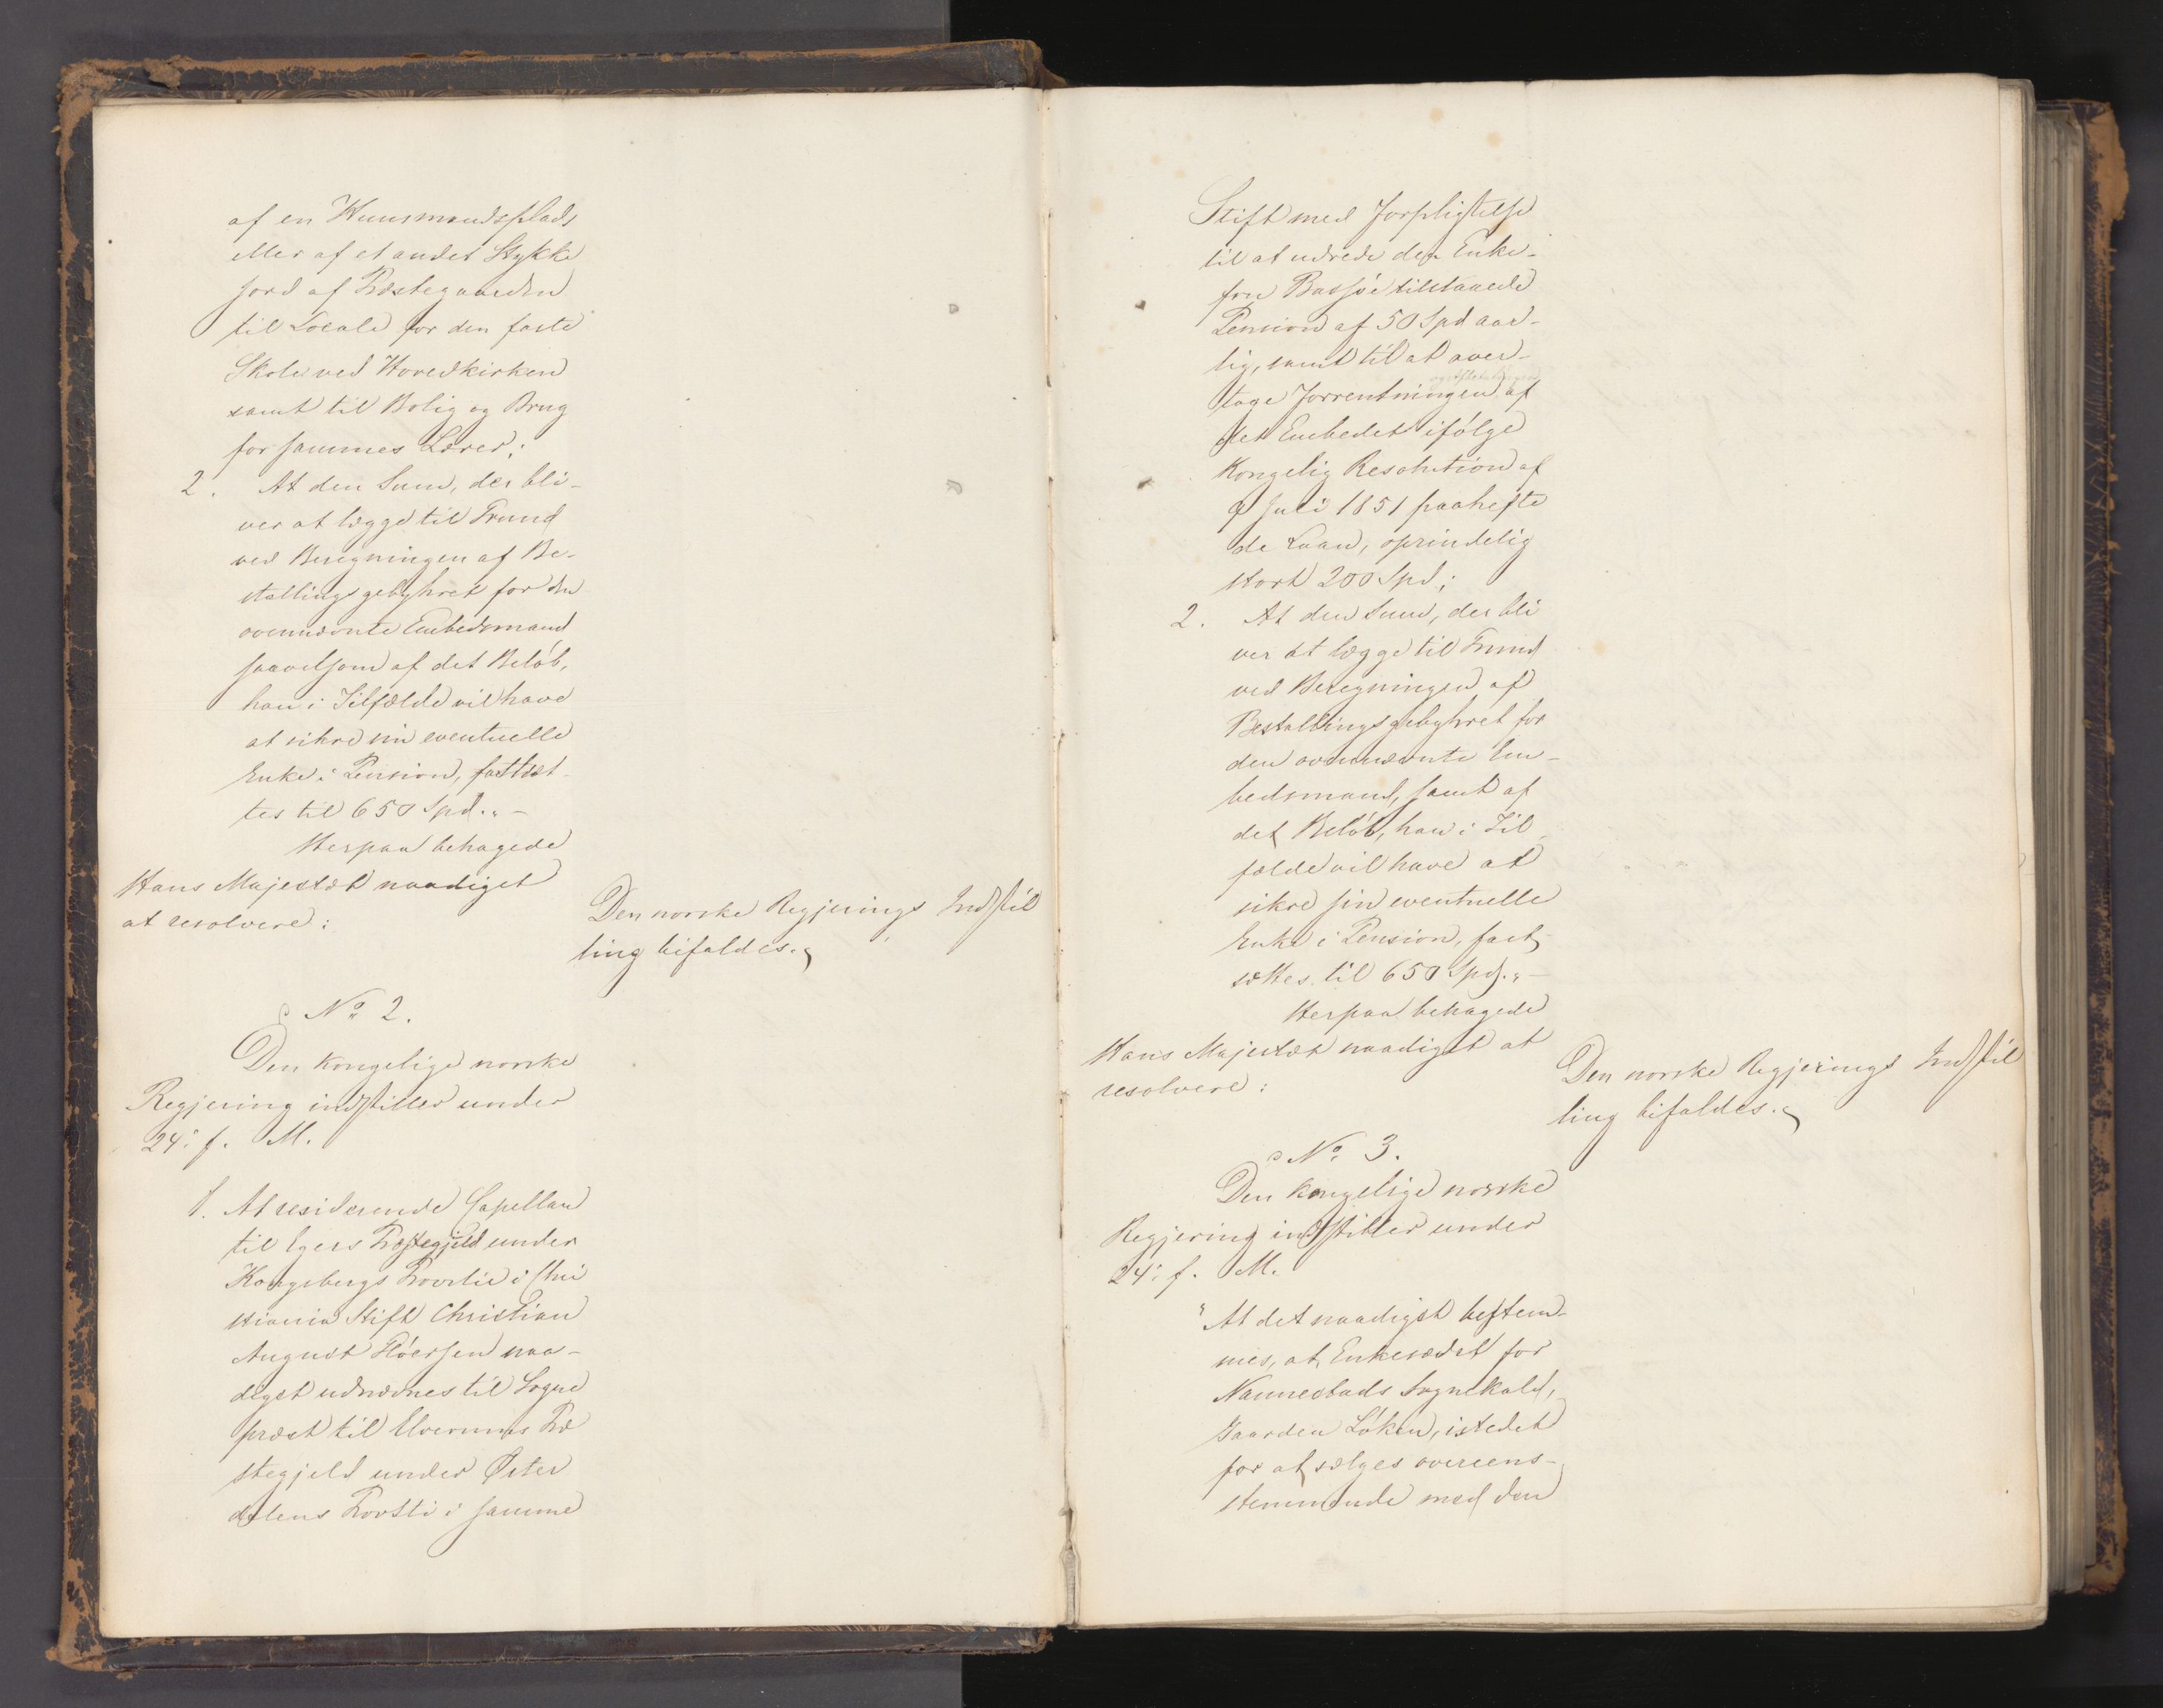 af en Huusmandsplads
eller af et andet Stykke
Jord af Præstegaarden
til Locale for den faste
Skole ved Hovedkirken
samt til Bolig og Brug
for sammes Lærer;
2. At den Sum, der bli-
ver at lægge til Grund
ved Beregningen af Be-
stallingsgebyhret for den
ovennævnte Embedsmand
saavelsom af det Beløb,
han i Tilfælde vil have
at sikre sin eventuelle
Enke i Pension, fastsæt-
tes til 650 Spd." -
Herpaa behagede
Hans Majestæt naadigst
at resolvere:
Den norske Regjerings Indstil
ling bifaldes.
No 2.
Den kongelige norske
Regjering indstiller under
24: f. M.
1. At residerende Capellan
til Egers Præstegjeld under
Kongsbergs Provstie i Chri
stiania Stift Christian
August naa-
digst udnævnes til Sogne
præst til Elverums Præ
stegjeld under Øster
dalens Provsti i samme
Stift med Forpligtelse
til at udrede den Enke-
frue Bassøe tilstaaede
Pension af 50 Spd aar-
lig, samt til at over-
tage Forrentningen af
det Embedet ifølge
Kongelig Resolution af
9 Juli 1851 paahefte
de Laan, oprindelig
stort 200 Spd;
2. At den Sum, der bli
ver at lægge til Grund
ved Beregningen af
Bestallingsgebyhret for
den ovennævnte Em-
bedsmand, samt af
det Beløb, han i Til
fælde vil have at
sikre sin eventuelle
Enke i Pension, fast
sættes til 650 Spd." -
Herpaa behagede
Hans Majestæt naadigst at
resolvere:
Den norske Regjerings Indstil
ling bifaldes.
No 3.
Den kongelige norske
Regjering indstiller under
24: f. M.
"At det naadigst bestem-
mes, at Enkesædet for
Nannestads Sognekald,
Gaarden Løken, istedet
for at sælges overeens-
stemmende med den